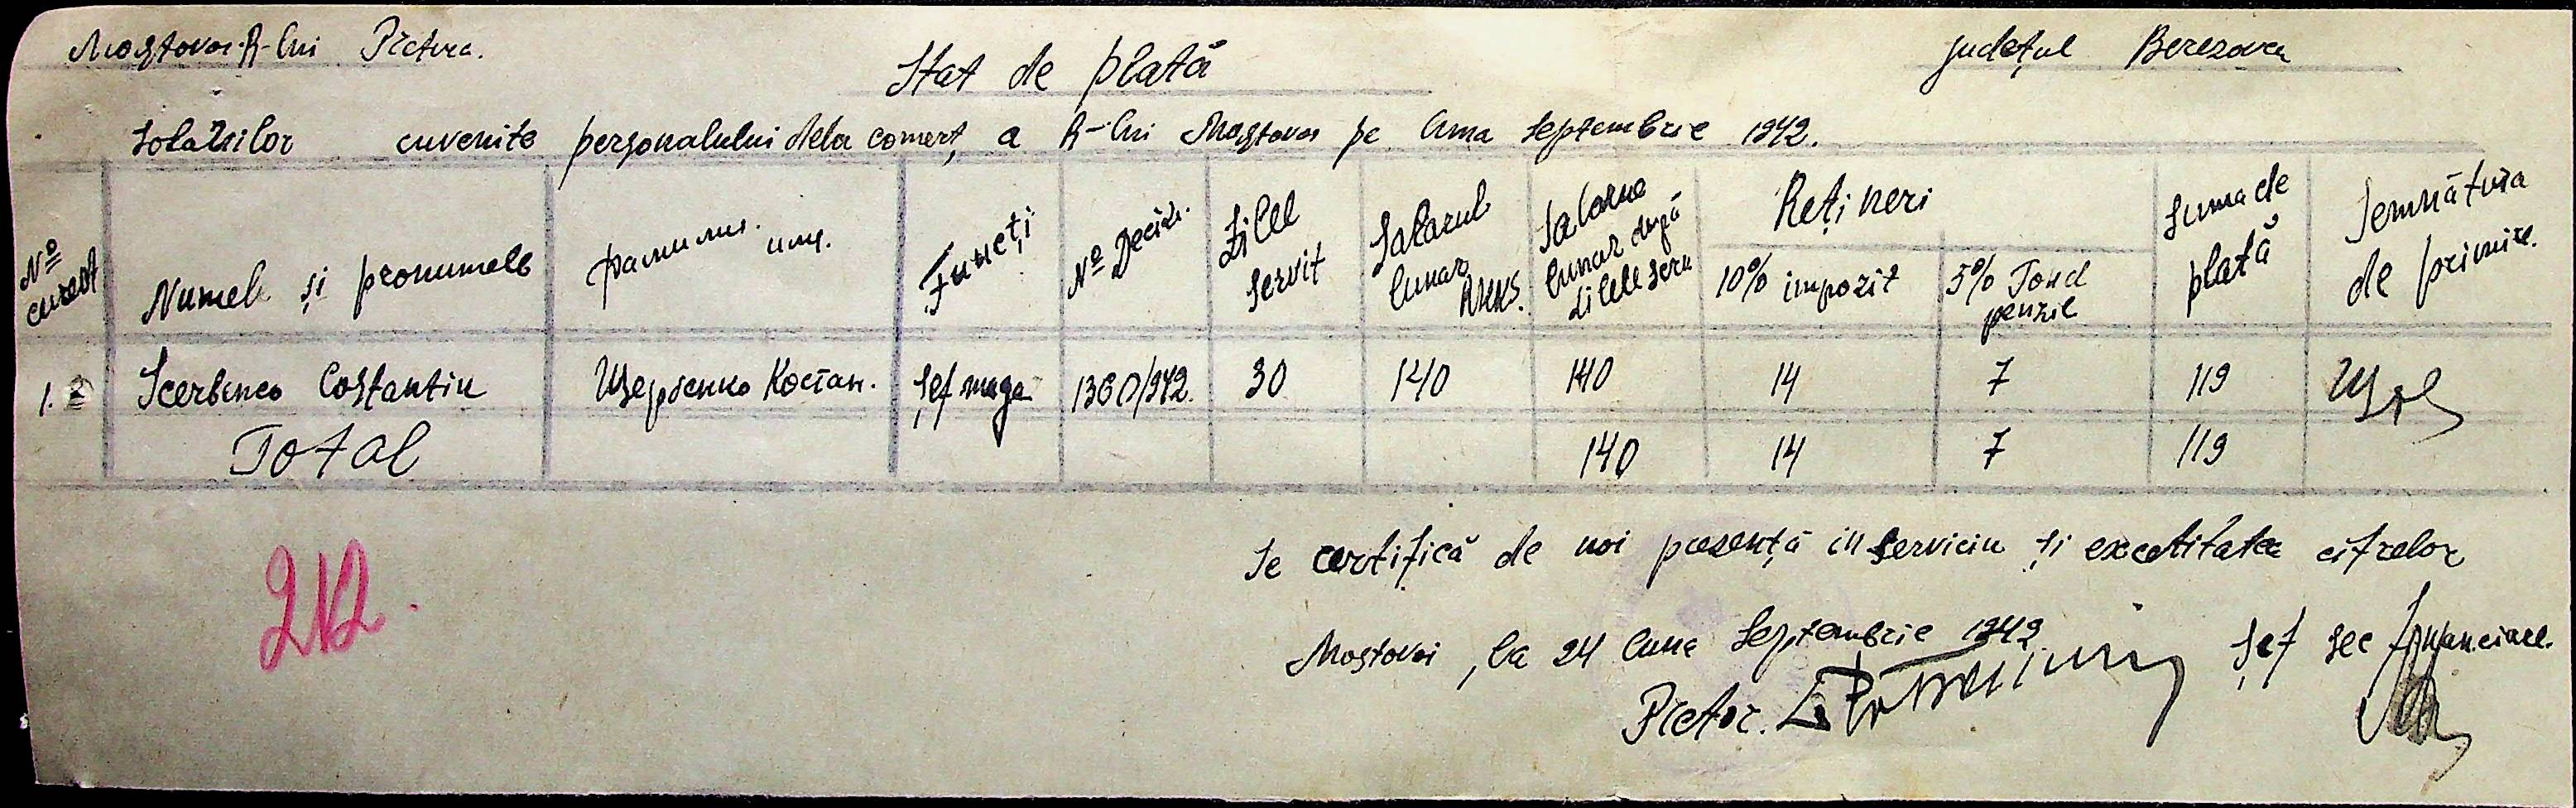 Mostovoi R-lui Pretura.
județul Berezovca
Stat de plată
Solatiilor cuvenite personalului dela comerț, a R-lui Mostovoi pe luna Septembrie 1942.
№ curent
Numele și pronumele
фамилия. имя.
Funcți
№ Decizi.
Zilel servit
Salarul lunar RKKS.
Salarul lunar după zilele serv
Rețineri
10% impozit
5% Fond penzie
Suma de plată
Semnătura de primire.
1. Scerbenco Costantin Щербенко Костан. șef maga 1360/942. 30 140 140 14 7 119
Total 140 14 7 119
Se certifică de noi prezență in serviciu și exectitatea cifrelor
Mostovoi, la 24 luna Septembrie 1942
Șef sec financiare.
Pretor.
212.